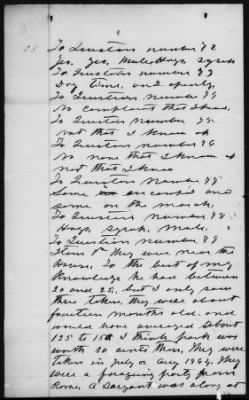 25
To Question number 72
Yes. Yes, Mule Hogs syrup
To Question number 73
Day time, and openly,
To Question number 74
No complaint that I know.
To Question number 75
not that I know of
To Question number 76
No none that I know of
not that I know
To Question number 77
Some encamped and
some on the march.
To Question number 78
Hogs, syrup, Mule.
To Question number 79
Item 1st they were near the
House. To the best of my
Knowledge he had between
20 and 25, but I only saw
three taken, they were about
fourteen months old. and
would have averaged about
125 to 150 I think pork was
worth 10 cents then, They were
taken in July or Aug 1864, They
were a foraging party from
Rome. A Sargant was along at